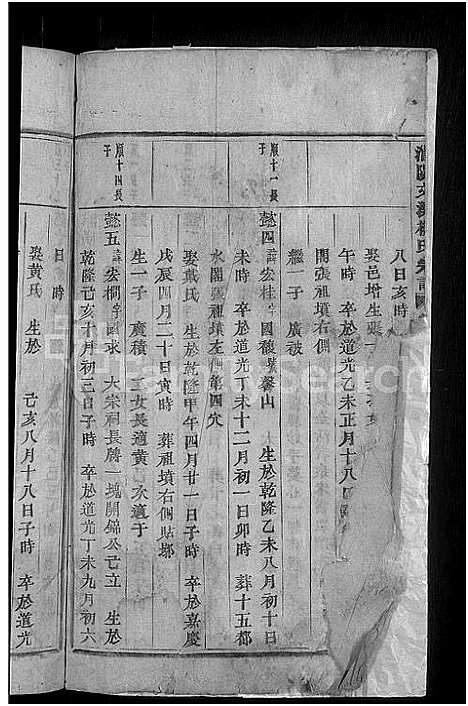 八日亥時
娶邑增生張
午時 卒於道光乙未正月十八
開張祖墳右側
繼一子 廣被
順十一長子
懿四 諱宏桂 字國馥 號馨山 生於乾隆乙未八月初十日
未時 卒於道光丁未十二月初一日卯時 葬十五都
水閣張祖墳左側第四穴
娶戴氏 生於乾隆甲午四月廿一日子時 卒於嘉慶
戊辰四月二十日寅時 葬祖墳右側貼塚
生一子 廣積 三女長適黃 次適于
順十四長子
懿五 諱宏櫚 字國求 大宗祠長勝一塊開錦公己立 生於
乾隆己亥十月初三日子時 卒於道光丁未九月初六
日 時
娶黃氏 生於 己亥八月十八日子時 卒於道光